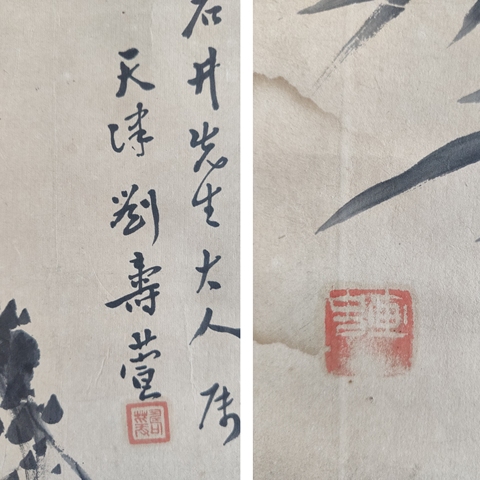 石井先生大人属
天津劉壽萱